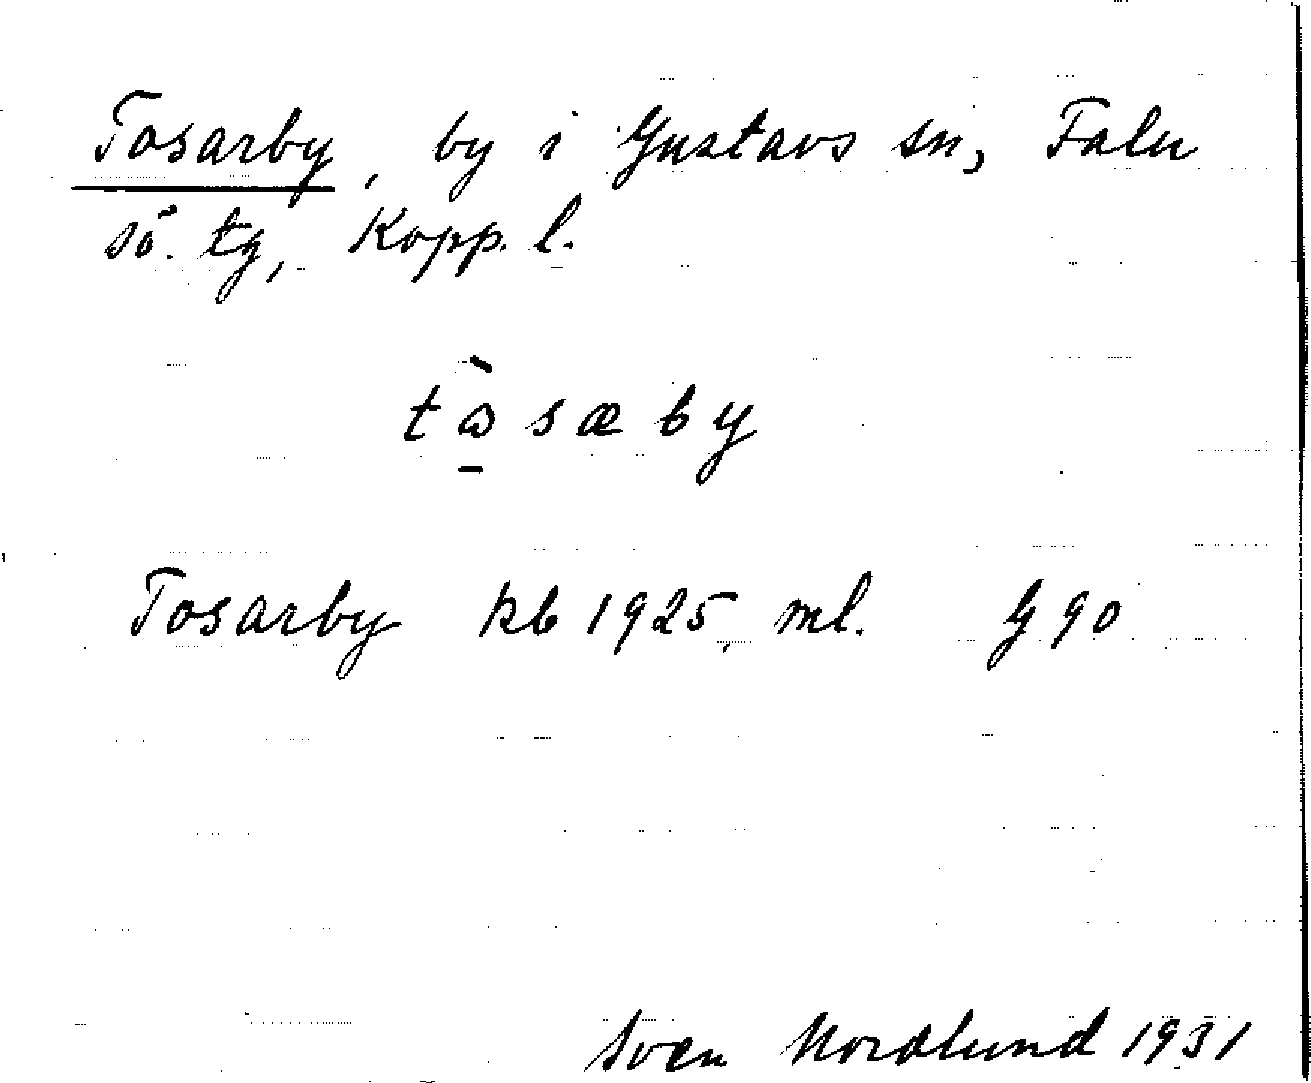 Tosarby, by i Gustavs sn, Falu
sö. tg, Kopp. l.
tⱺ̀sæby
Tosarby kb 1925, ml. G 90
Sven Nordlund 1931